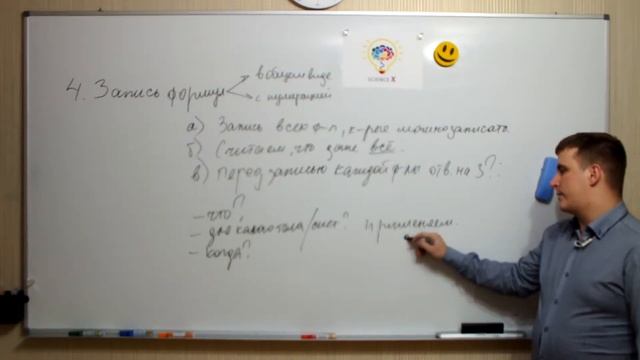 SCIENCE X
4. Запись формул
в общем виде
с нумерацией
а) Запись всех ф-л, к-рые можно записать
б) Считаем, что дано всё.
в) Перед записью каждой ф-лы отв. на 3?:
- что?
- для какого тела/сист? применяем.
- когда?